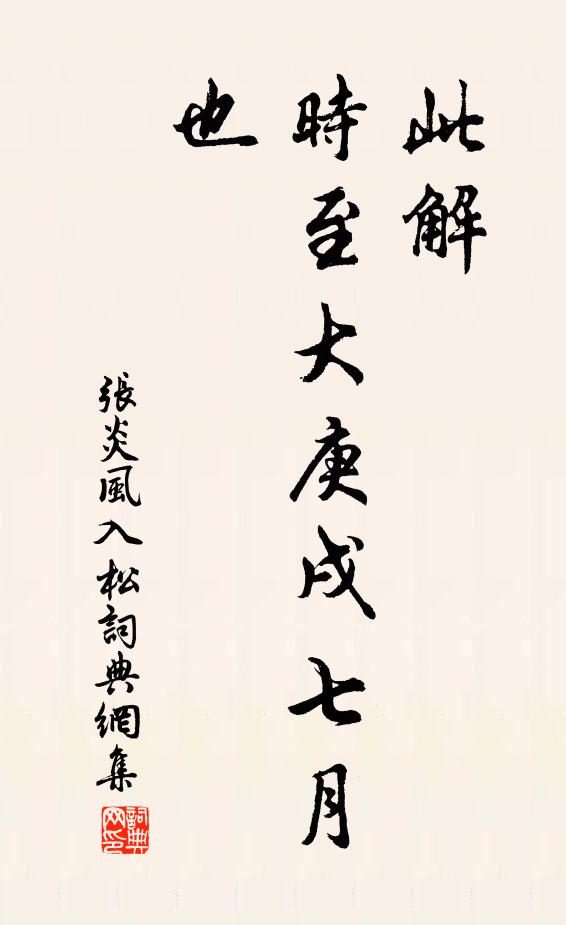 此解
時至大庚戌七月
也
張炎風入松詞典網集
詞典网印